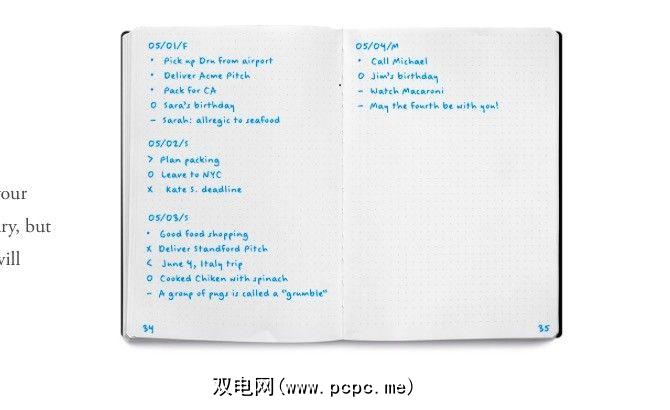 your
ry, but
will
05/01/F
• Pick up Dru from airport
• Deliver Acme Pitch
• Pack for CA
O Sara's birthday
– Sarah: allregic to seafood
05/02/S
> Plan packing
O Leave to NYC
x Kate S. deadline
05/03/S
• Good food shopping
x Deliver Standford Pitch
< June 4, Italy trip
O Cooked Chiken with spinach
– A group of pugs is called a "grumble"
34
05/04/M
• Call Michael
O Jim's birthday
– Watch Macaroni
– May the fourth be with you!
35
双电网(www.pcpc.me)